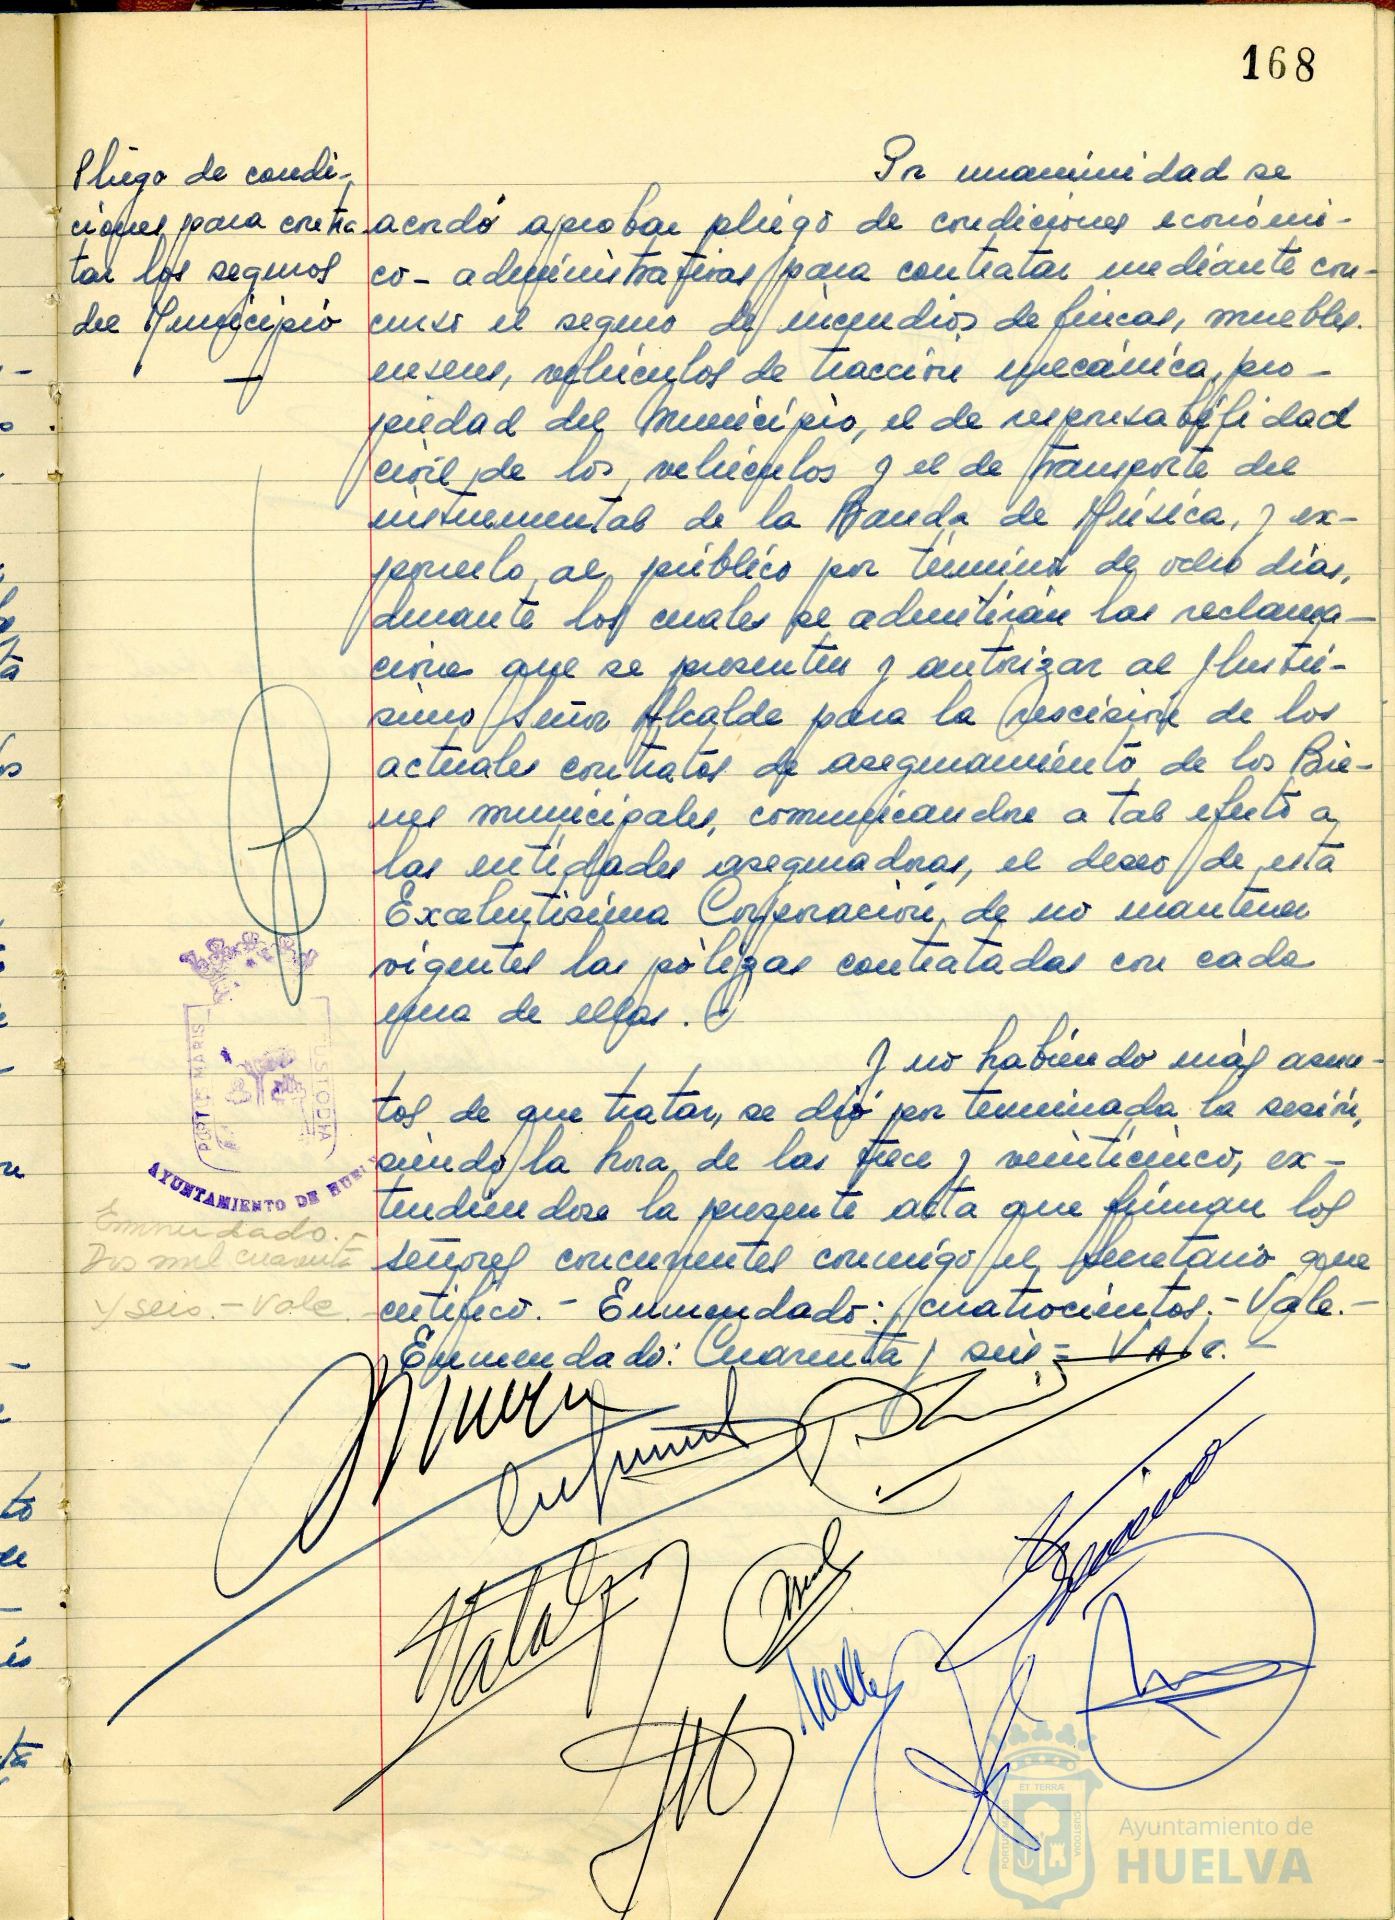 168
Pliego de condi-
ciones para contra
tar los seguros
del Municipio
Por unaminidad se
acordó aprobar pliego de condiciones económi-
co-administrativas para contratar mediante con-
curso el seguro de incendios de fincas, muebles.
enseres, vehículos de tracción mecánica, pro-
piedad del Municipio, el de responsabilidad
civil de los vehículos y el de transporte del
instrumental de la Banda de Música, y ex-
ponerlo al público por término de ocho días,
durante los cuales se admitirán las reclama-
ciones que se presenten y autorizar al Ilustrí-
simo Señor Alcalde para la rescisión de los
actuales contratos de aseguramiento de los Bie-
nes municipales, comunicandose a tal efecto a
las entidades aseguradoras, el deseo de esta
Excelentísima Corporación, de no mantener
vigentes las pólizas contratadas con cada
una de ellas.
Y no habiendo más asun-
tos de que tratar, se dió por terminada la sesión,
siendo la hora de las trece y veinticinco, ex-
tendiendose la presente acta que firman los
señores concurrentes conmigo el Secretario que
certifico. - Enmendado: cuatrocientos. - Vale. -
Enmendado: Cuarenta y seis = Vale. -
Enmendado. -
Dos mil cuarenta
y seis. - Vale
PORTUS MARIS
CUSTODIA
AYUNTAMIENTO DE HUELV
ET TERRÆ
PORTUS MARIS
CUSTODIA
Ayuntamiento de
HUELVA